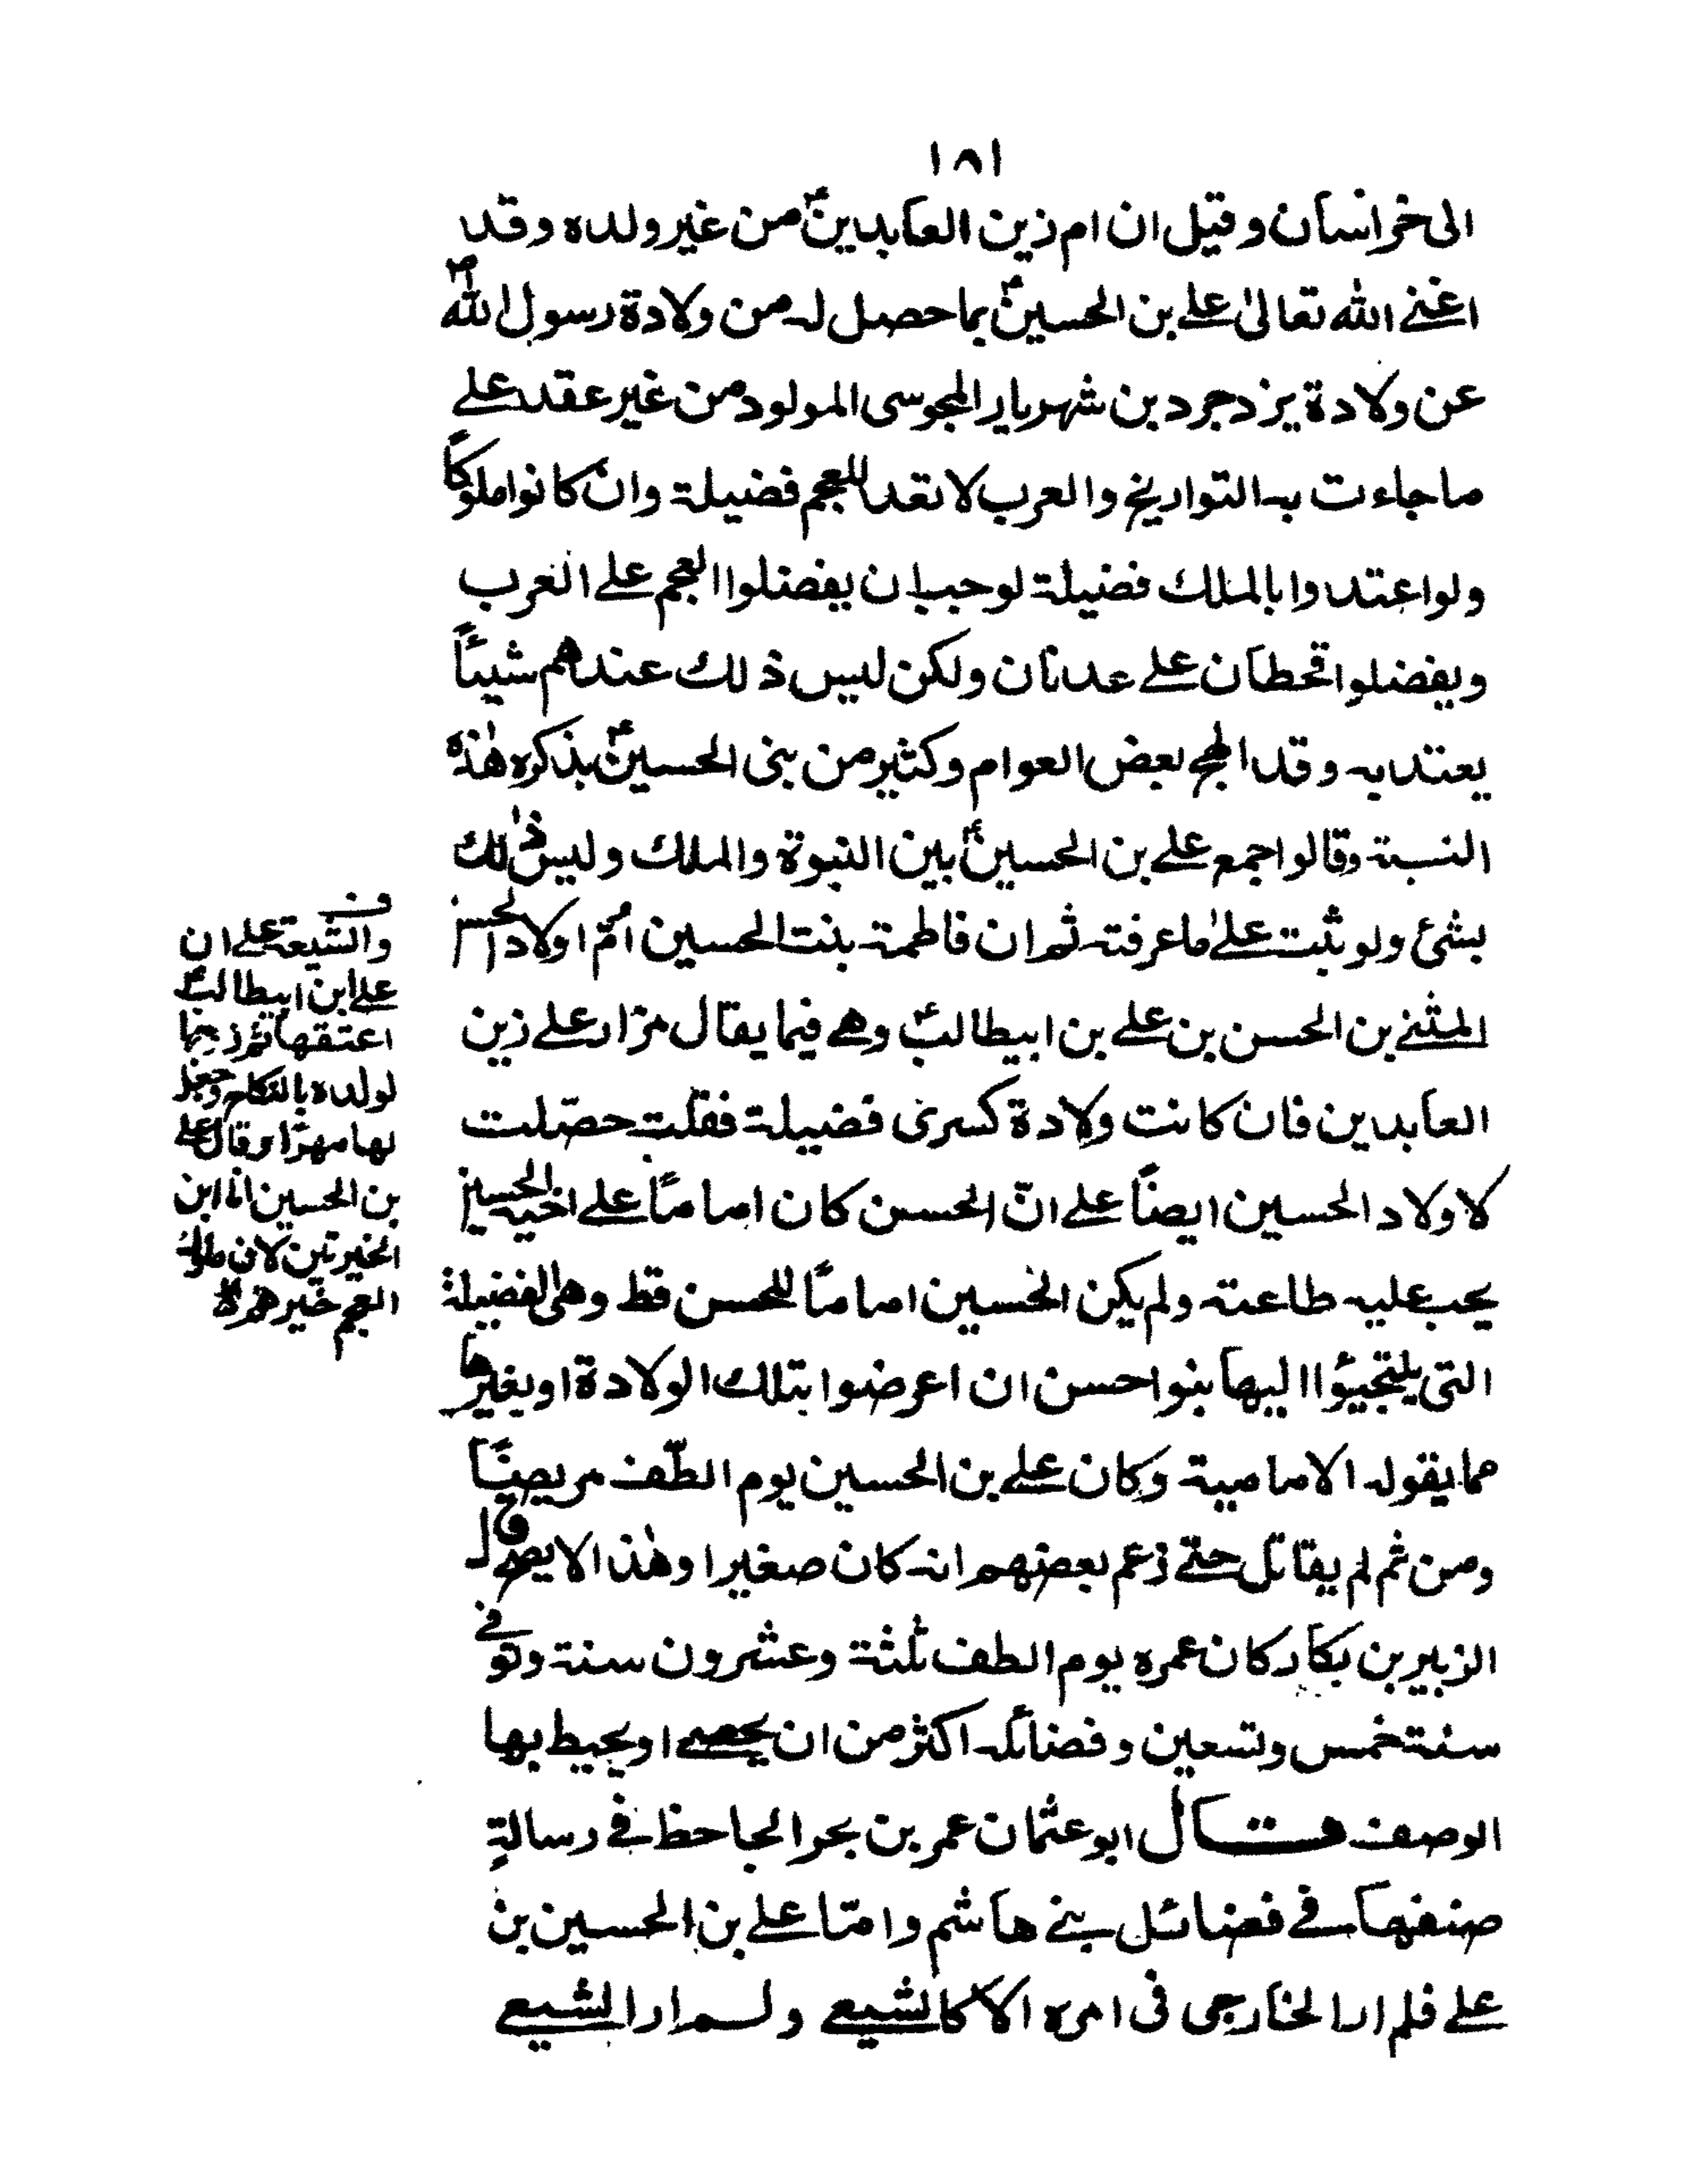 ١٨١
الى خراسان وقيل ان ام زين العابدينؑ من غير ولده وقد
اغنے الله تعالىٰ علے بن الحسينؑ بما حصل له من ولادة رسول اللهؐ
عن ولادة يزدجرد بن شهريار المجوسى المولود من غير عقد علے
ما جاءت به التواريخ والعرب لا تعد للعجم فضيلة وان كانوا ملوكًا
ولو اعتدوا بالملك فضيلة لوجب ان يفضلوا العجم على العرب
ويفضلوا قحطان علے عدنان ولكن ليس ذلك عندهم شيئًا
يعتد به وقد الهج بعض العوام وكثير من بنى الحسينؑ بذكره هٰذه
النسبة وقالوا جمع علے بن الحسينؑ بين النبوة والملك وليس ذٰلك
بشئ ولو ثبت علےٰ ما عرفته ثم ان فاطمة بنت الحسين امّ اولاد الحسن
المثنے بن الحسن بن علے بن ابيطالبؑ وهے فيما يقال مزار علے زين
العابدين فان كانت ولادة كسرى فضيلة فقلت حصّلت
لاولاد الحسين ايضًا علے انّ الحسن كان امامًا علے اخيه الحسين
يجب عليه طاعته ولم يكن الحسين امامًا للحسن قط وهى الفضيلة
التى يلتجيؤا اليها بنوا حسن ان اعرضوا بتلك الولادة او بغيرها
مما يقوله الامامية وكان علے بن الحسين يوم الطّف مريضًا
ومن ثم لم يقاتل حتے زعم بعضهم انه كان صغيرا وهٰذا لا يصح قال
الزبير بن بكار كان عمره يوم الطف ثلثة وعشرون سنة وتوفے
سنة خمس وتسعين وفضائله اكثر من ان يحصے او يحيط بها
الوصف قال ابو عثمان عمر بن بحر الجاحظ فے رسالةٍ
صنفها فے فضائل بنے هاشم وامّا علے بن الحسين بن
علے فلم ار الخارجى فى امره الا كالشيعے ولم ار الشيعے
والشيعة علے ان
علے ابن ابيطالبؑ
اعتقها ثم زوجها
لولده بالنكاح وجعل
لها مهرًا وقال علے
بن الحسين انا ابن
الخيرتين لان ملوك
العجم خير